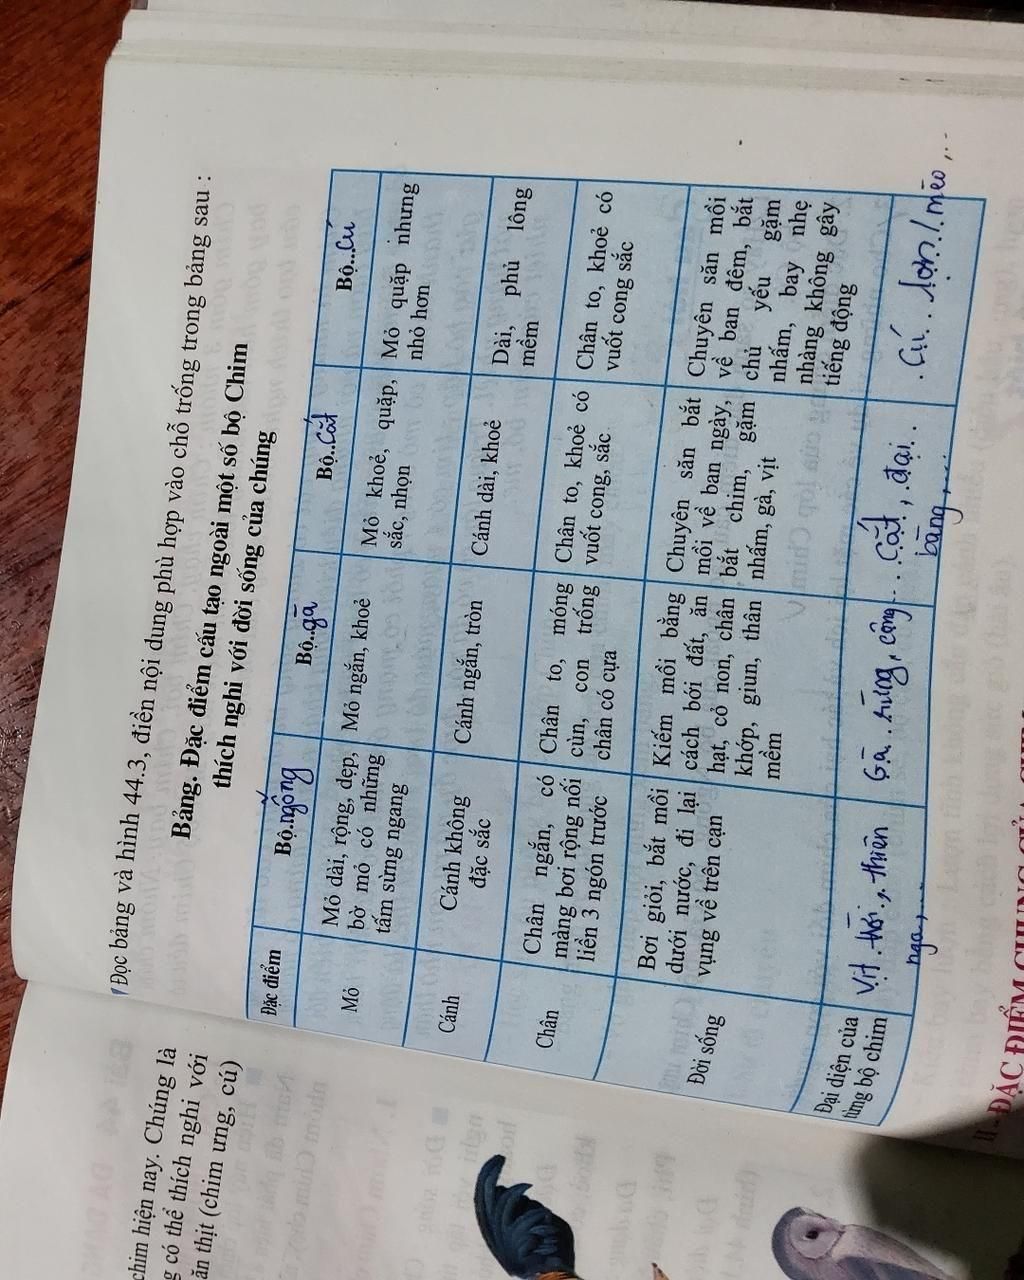 chim hiện nay. Chúng là
g có thể thích nghi với
ăn thịt (chim ưng, cú)
Đọc bảng và hình 44.3, điền nội dung phù hợp vào chỗ trống trong bảng sau :
Bảng. Đặc điểm cấu tạo ngoài một số bộ Chim
thích nghi với đời sống của chúng
Đặc điểm
Bộ..ngỗng
Bộ..gà
Bộ..Cắt
Bộ...Cú
Mỏ
Mỏ dài, rộng, dẹp,
bờ mỏ có những
tấm sừng ngang
Mỏ ngắn, khoẻ
Mỏ khoẻ, quặp,
sắc, nhọn
Mỏ quặp nhưng
nhỏ hơn
Cánh
Cánh không
đặc sắc
Cánh ngắn, tròn
Cánh dài, khoẻ
Dài, phủ lông
mềm
Chân
Chân ngắn, có
màng bơi rộng nối
liền 3 ngón trước
Chân to, móng
cùn, con trống
chân có cựa
Chân to, khoẻ có
vuốt cong, sắc
Chân to, khoẻ có
vuốt cong sắc
Đời sống
Bơi giỏi, bắt mồi
dưới nước, đi lại
vụng về trên cạn
Kiếm mồi bằng
cách bới đất, ăn
hạt, cỏ non, chân
khớp, giun, thân
mềm
Chuyên săn bắt
mồi về ban ngày,
bắt chim, gặm
nhấm, gà, vịt
Chuyên săn mồi
về ban đêm, bắt
chủ yếu gặm
nhấm, bay nhẹ
nhàng không gây
tiếng động
Đại diện của
từng bộ chim
Vịt. trời., thiên
nga,...
Gà. rừng, công
..Cắt, đại..
bàng,...
.Cú...lợn./.mèo,...
II - ĐẶC ĐIỂM CHUNG CỦA